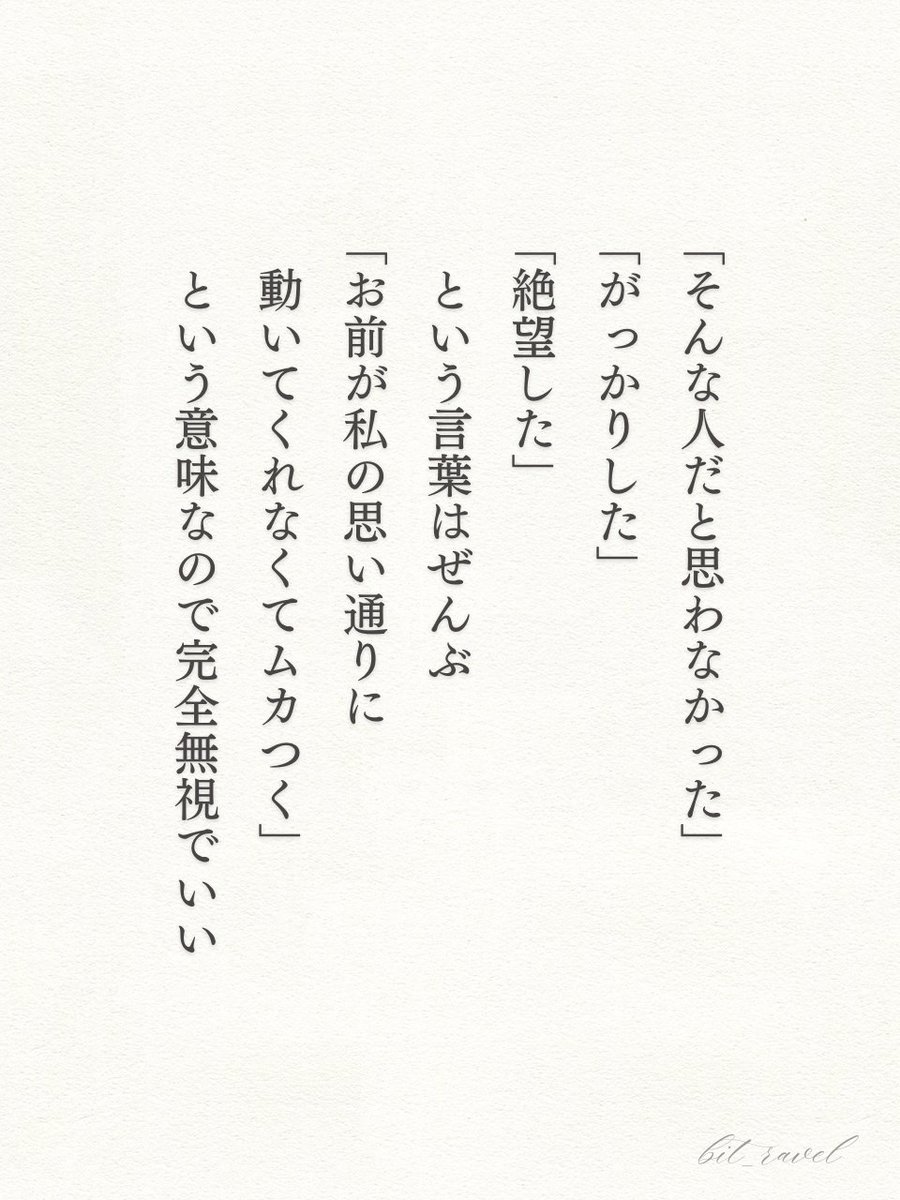 「そんな人だと思わなかった」
「がっかりした」
「絶望した」
という言葉はぜんぶ
「お前が私の思い通りに
動いてくれなくてムカつく」
という意味なので完全無視でいい
bit_ravel